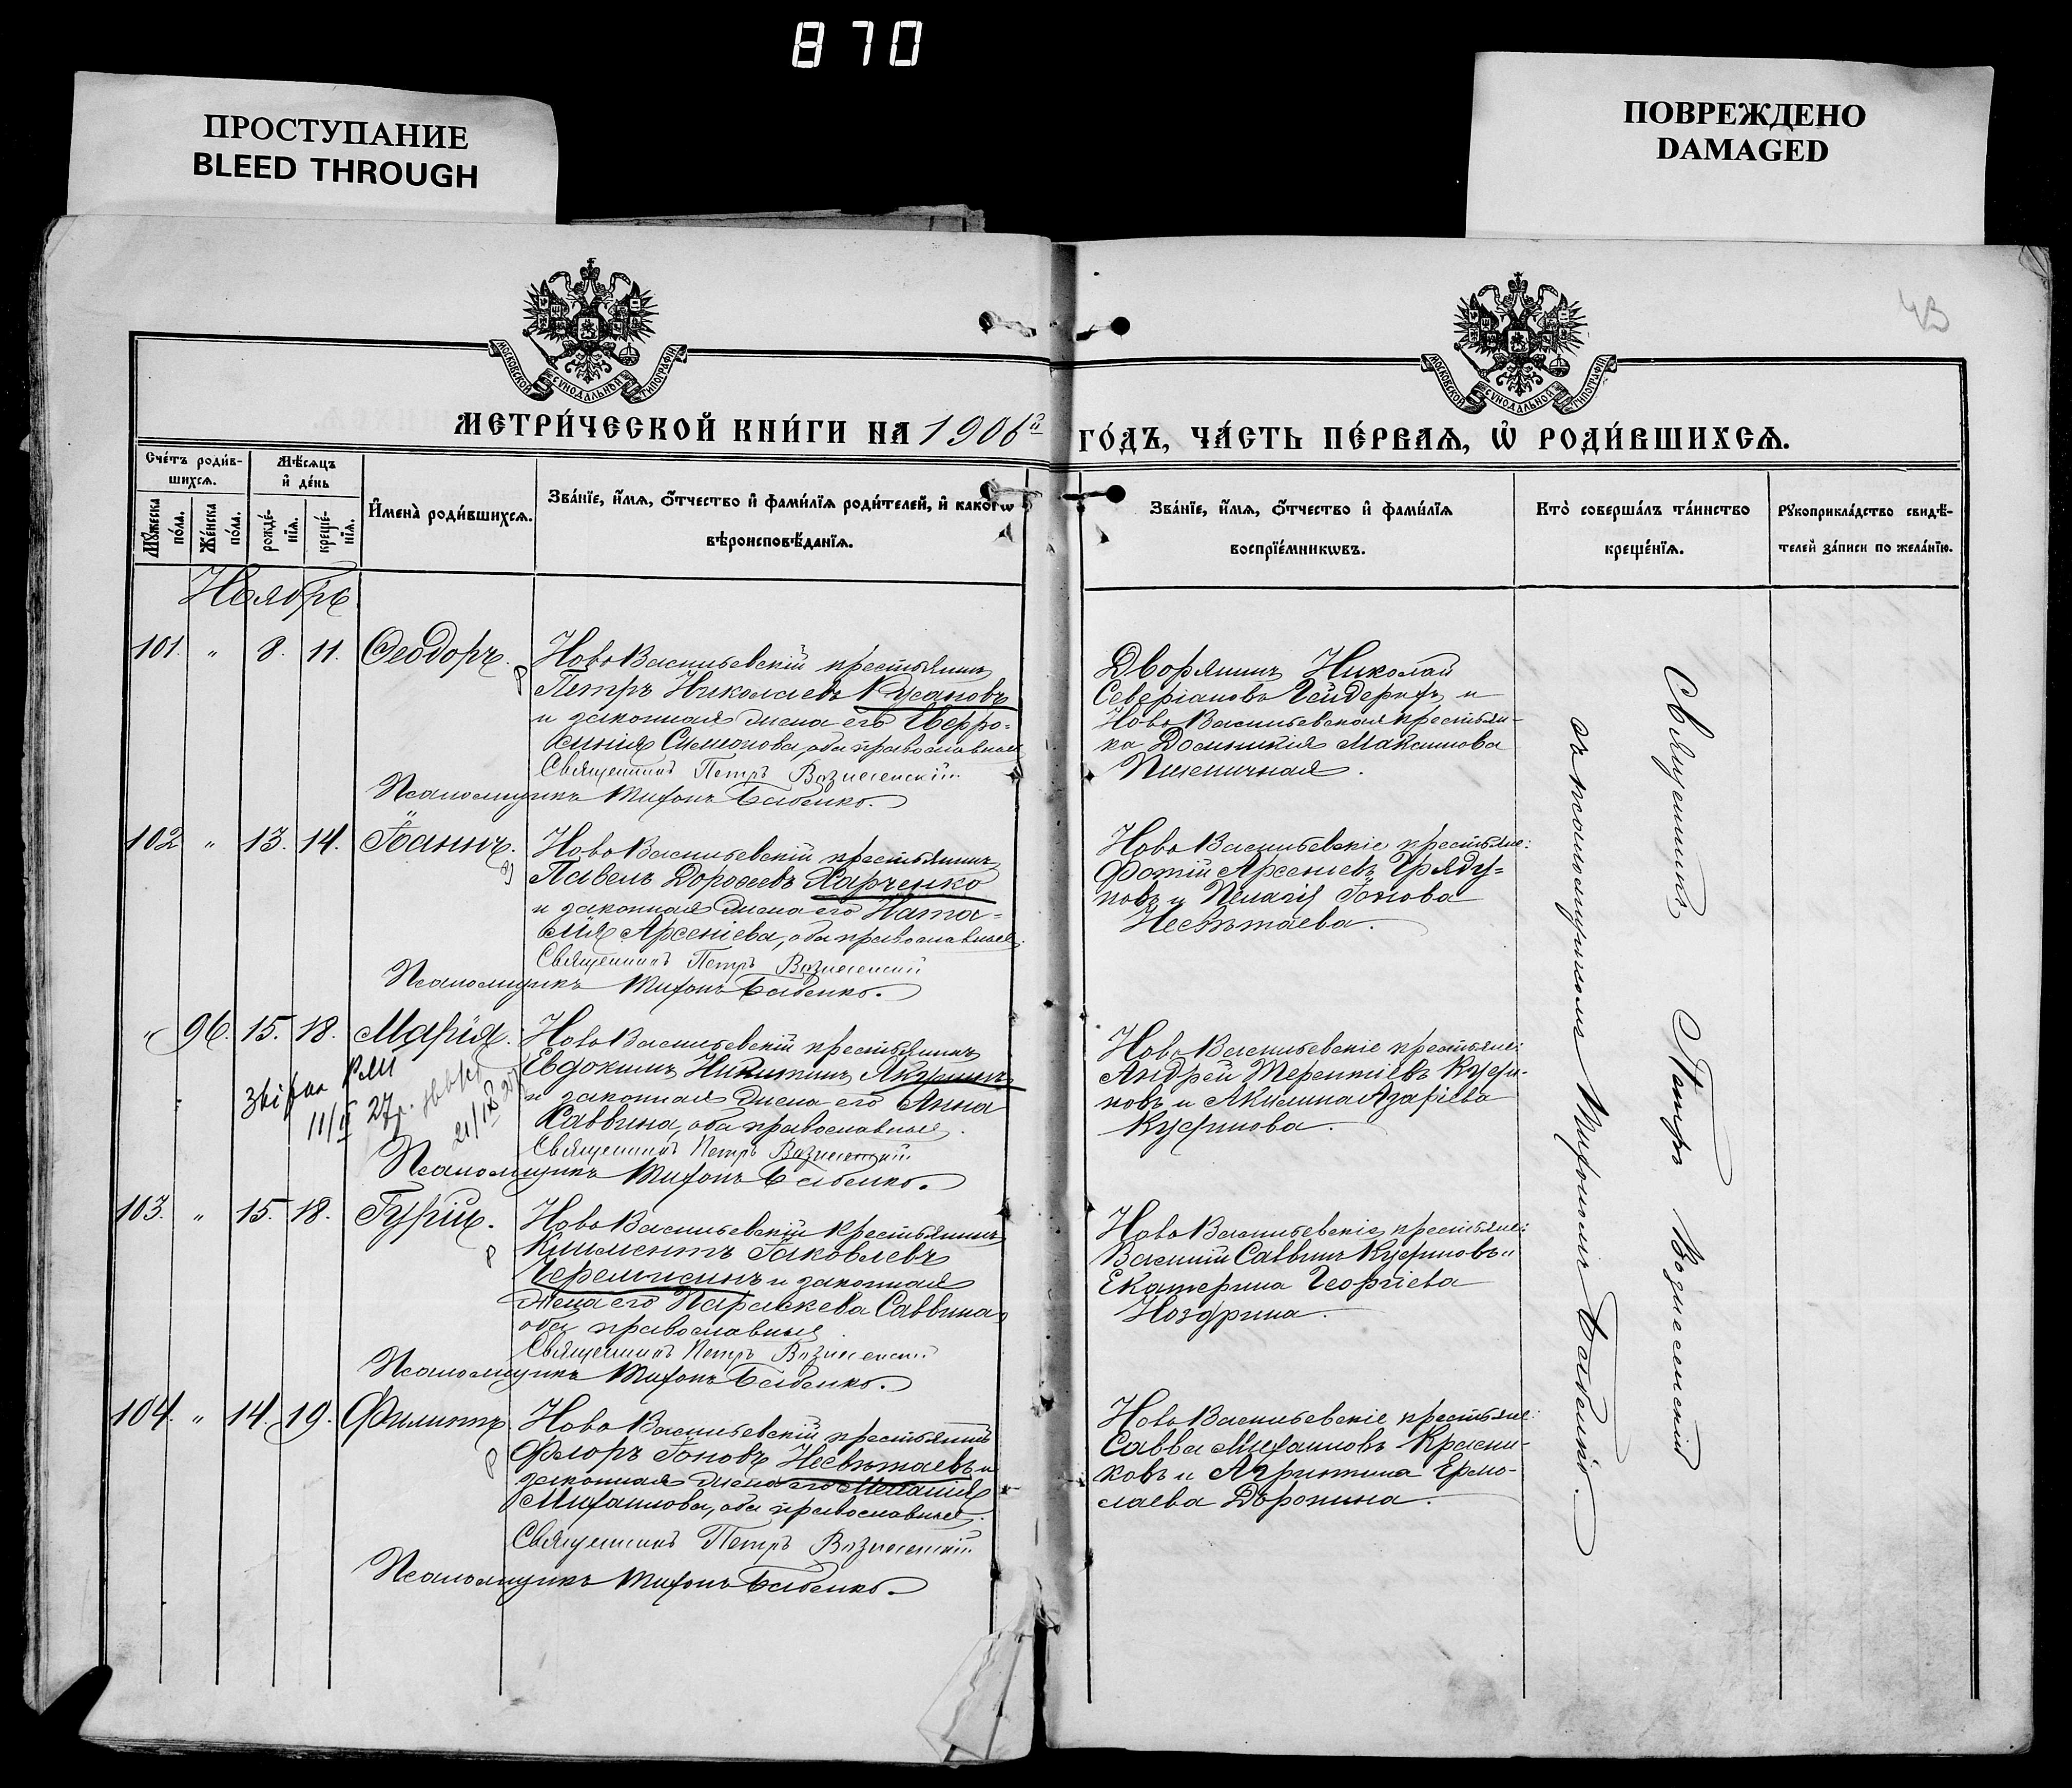 870
ПРОСТУПАНИЕ
BLEED THROUGH
ПОВРЕЖДЕНО
DAMAGED
43
МОСКОВСКОЙ СУНОДАЛЬНОЙ ТИПОГРАФІИ
МОСКОВСКОЙ СУНОДАЛЬНОЙ ТИПОГРАФІИ
МЕТРИ́ЧЕСКОЙ КНИ́ГИ НА 1906й
ГО́ДЪ, ЧА́СТЬ ПЕ́РВАѦ, Ѡ҆ РОДИ́ВШИХСѦ.
Сче́тъ роди́в-
шихсѧ.
Мѣ́сѧцъ
и҆ де́нь
Мꙋ́жеска
по́ла.
Же́нска
по́ла.
рожде́-
нїѧ.
креще́-
нїѧ.
И҆мена̀ роди́вшихсѧ.
Зва́нїе, и҆́мѧ, ѻ҆́тчество и҆ фами́лїѧ роди́телей, и҆ како́гѡ
вѣроисповѣ́данїѧ.
Зва́нїе, и҆́мѧ, ѻ҆́тчество и҆ фами́лїѧ
воспрїе́мникѡвъ.
Кто̀ соверша́лъ та́инство
креще́нїѧ.
Рꙋкоприкла́дство свидѣ́-
телей за́писи по жела́нїю.
Ноябрь
101. " 8. 11. Ѳеодоръ.
НовоВасильевскій крестьянинъ
Петръ Николаевъ Кусановъ
и законная жена его Евфро-
синія Симеонова, оба православные
Священникъ Петръ Вознесенскій
Псаломщикъ Тихонъ Бабенко.
Дворянинъ Николай
Северіановъ Гейдерихъ и
НовоВасильевская крестьян-
ка Домникія Максимова
Пшеничная.
102 " 13. 14. Іоаннъ.
НовоВасильевскій крестьянинъ
Павелъ Дороѳеевъ Харченко
и законная жена его Ната-
лія Арсеніева, оба православные.
Священникъ Петръ Вознесенскій
Псаломщикъ Тихонъ Бабенко.
НовоВасильевскіе крестьяне:
Фотій Арсеніевъ Гряду-
новъ и Пелагія Іонова
Несвѣтаева.
" 96. 15. 18. Марія.
НовоВасильевскій крестьянинъ
Евдокимъ Никитинъ Акулинъ
и законная жена его Анна
Саввина, оба православные.
Священникъ Петръ Вознесенскій
Псаломщикъ Тихонъ Бабенко.
11/II 27р.
НовоВасильевскіе крестьяне:
Андрей Терентіевъ Кузи-
новъ и Акилина Азаріева
Кузинова.
103. " 15. 18. Гурій.
НовоВасильевскій крестьянинъ
Климентъ Іаковлевъ
Черемисинъ и законная
жена его Параскева Саввина,
оба православные.
Священникъ Петръ Вознесенскій
Псаломщикъ Тихонъ Бабенко.
НовоВасильевскіе крестьяне:
Василій Саввинъ Кузиновъ и
Екатерина Георгіева
Ноздрина.
104. " 14. 19. Филиппъ
НовоВасильевскій крестьянинъ
Флоръ Іоновъ Несвѣтаевъ и
законная жена его Меланія
Михаилова, оба православные.
Священникъ Петръ Вознесенскій
Псаломщикъ Тихонъ Бабенко.
НовоВасильевскіе крестьяне:
Савва Михаиловъ Красни-
ковъ и Агриппина Ермо-
лаева Доронина.
Священникъ Петръ Вознесенскій
съ псаломщикомъ Тихономъ Бабенко.